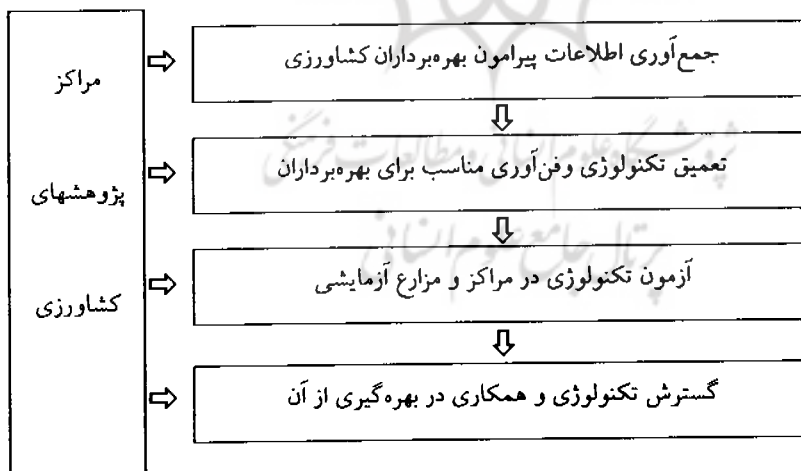 مراکز
پژوهشهای
کشاورزی
جمع‌آوری اطلاعات پیرامون بهره‌برداران کشاورزی
تعمیق تکنولوژی وفن‌آوری مناسب برای بهره‌برداران
آزمون تکنولوژی در مراکز و مزارع آزمایشی
گسترش تکنولوژی و همکاری در بهره‌گیری از آن
پژوهشگاه علوم انسانی و مطالعات فرهنگی
پرتال جامع علوم انسانی